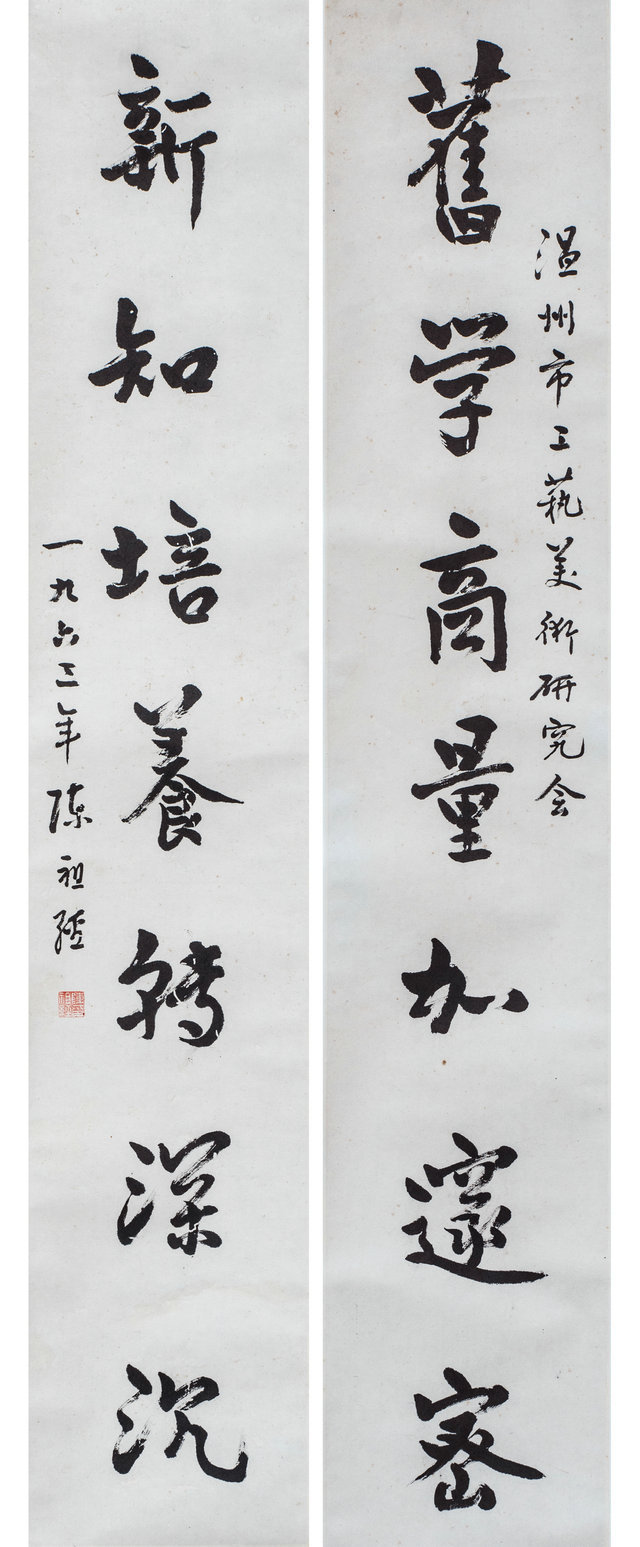 温州市工蓺美術研究会
舊学商量加邃密
新知培養轉深沉
一九六三年陳祖經